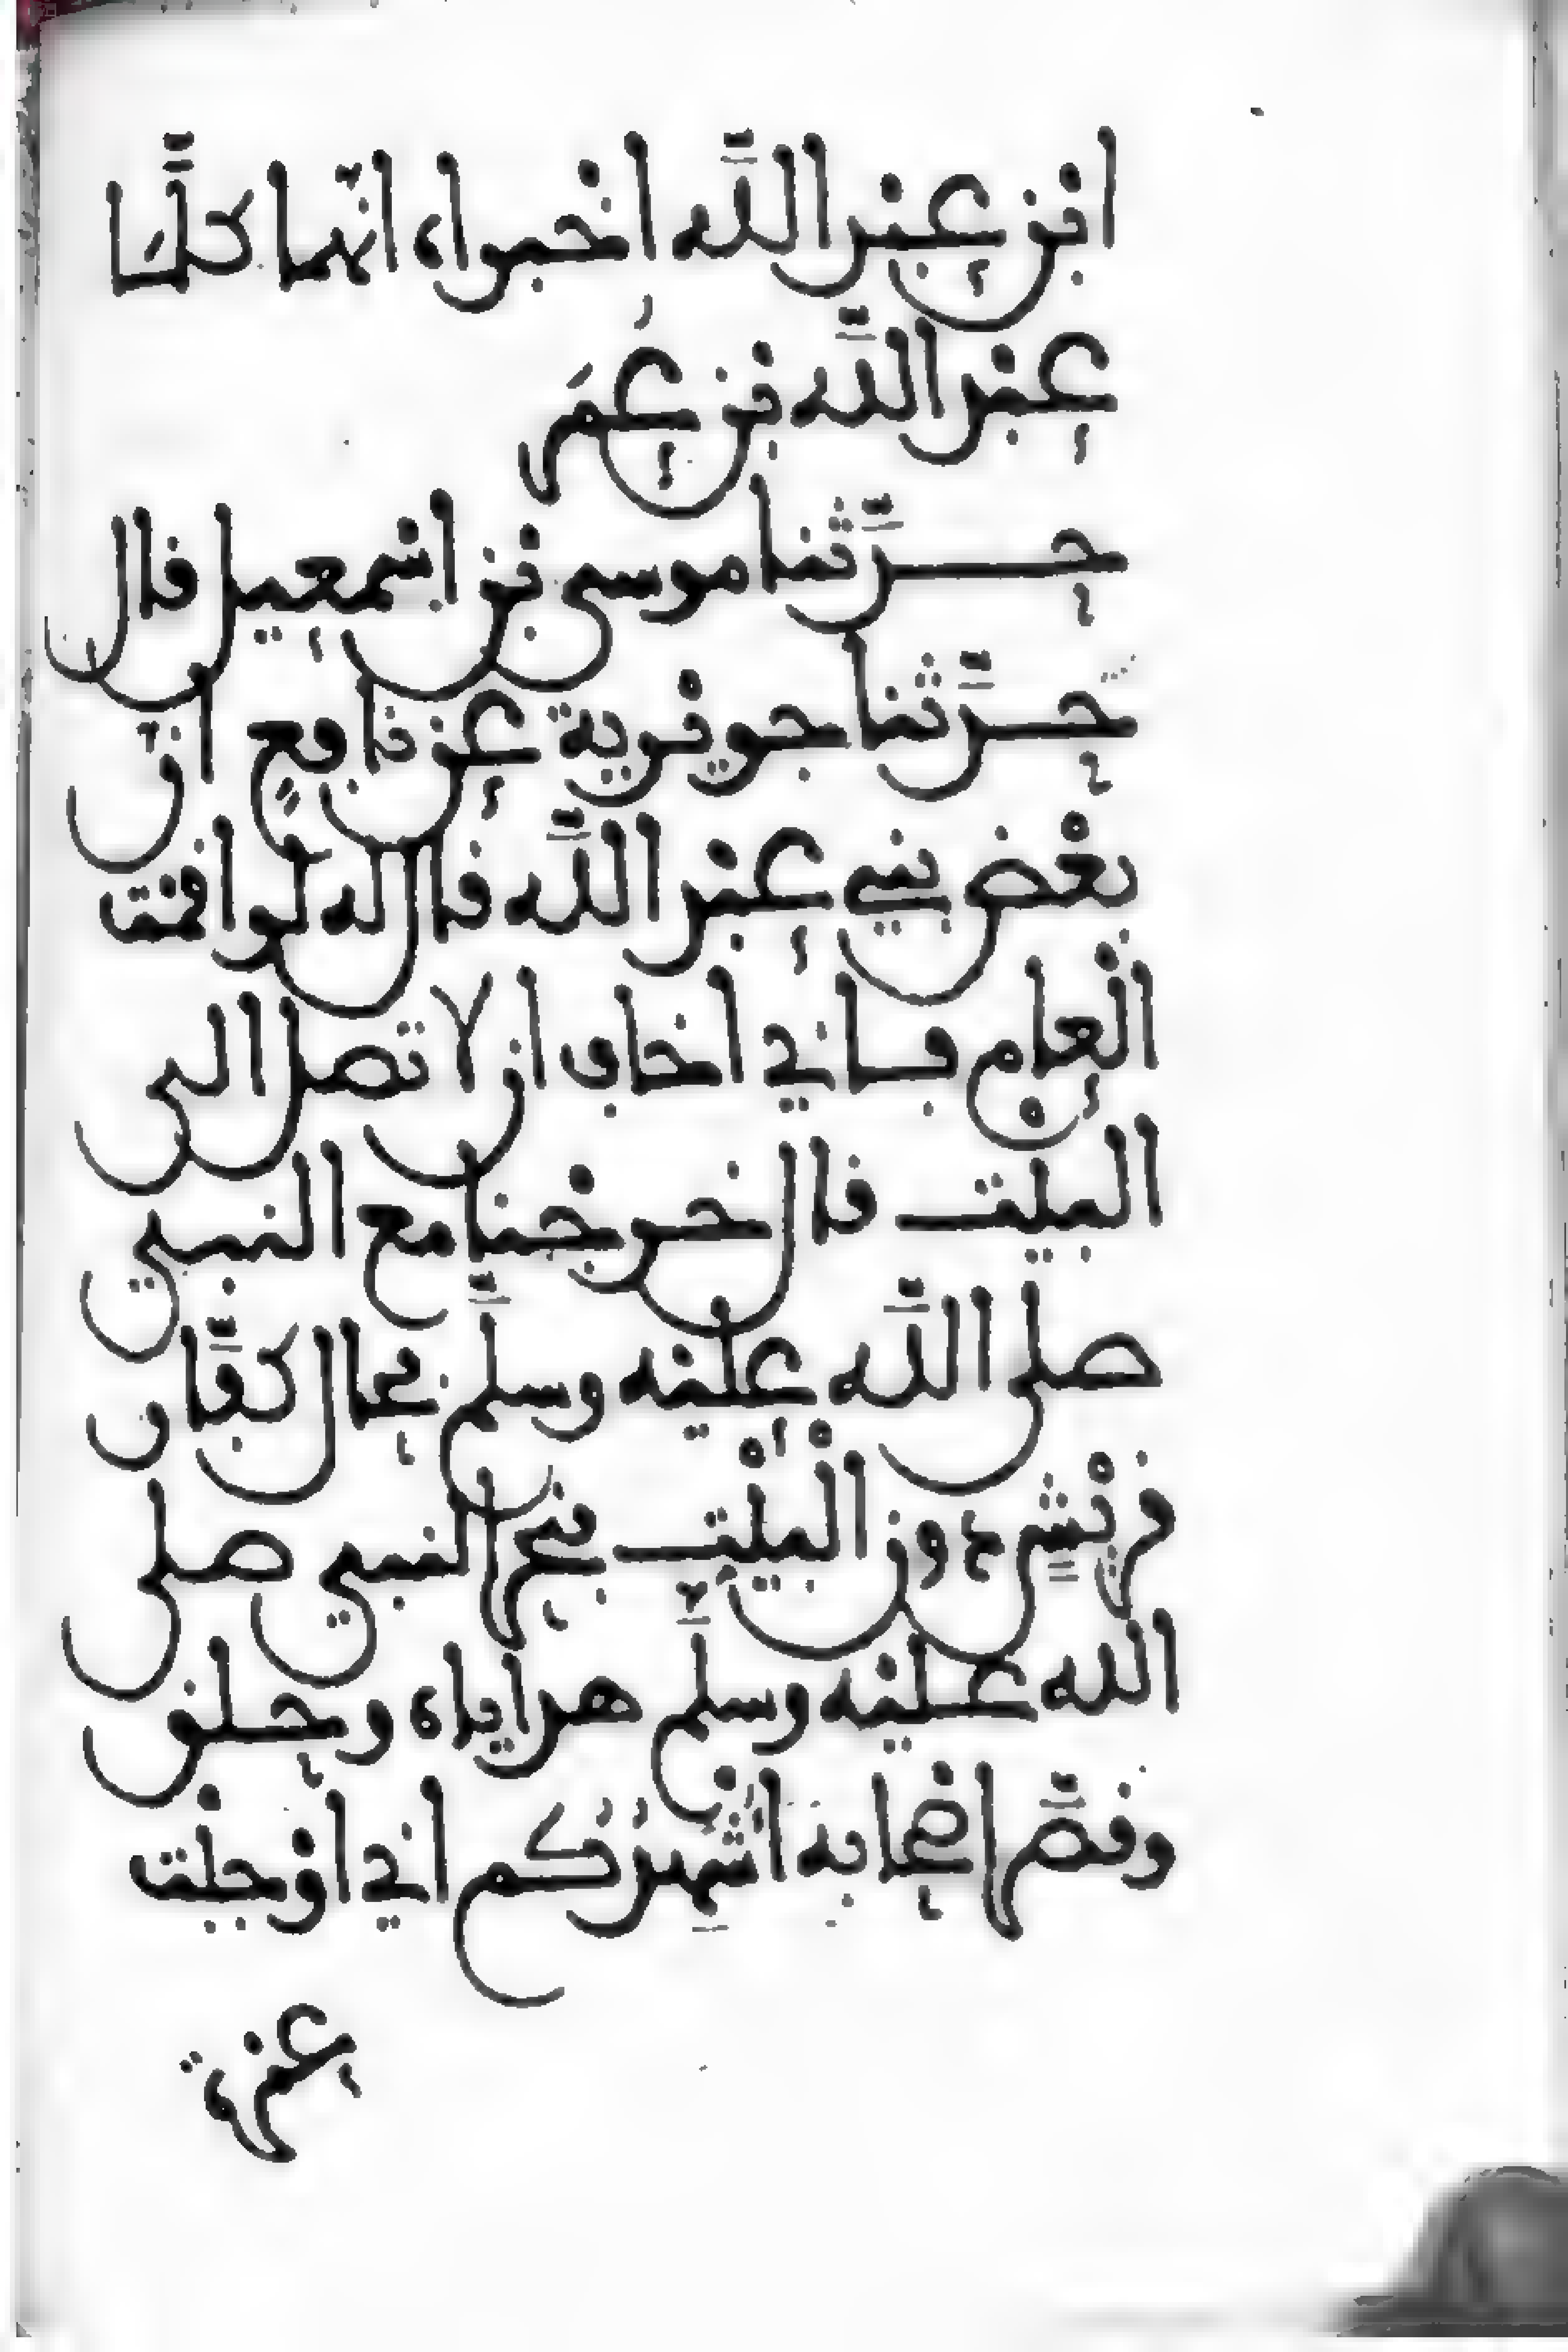 ابن عبد الله اخبراه انهما كلما
عبد الله بن عمر
حدثنا موسى بن اسمعيل قال
حدثنا جويرية عن نافع ان
بعض بني عبد الله قال له لو اقمت
العام فاني اخاف ان لا تصل الى
البيت قال خرجنا مع النبي
صلى الله عليه وسلم فحال كفار
قريش دون البيت فنحر النبي صلى
الله عليه وسلم هداياه وحلق
وقصر اصحابه اشهدكم اني اوجبت
عمرة